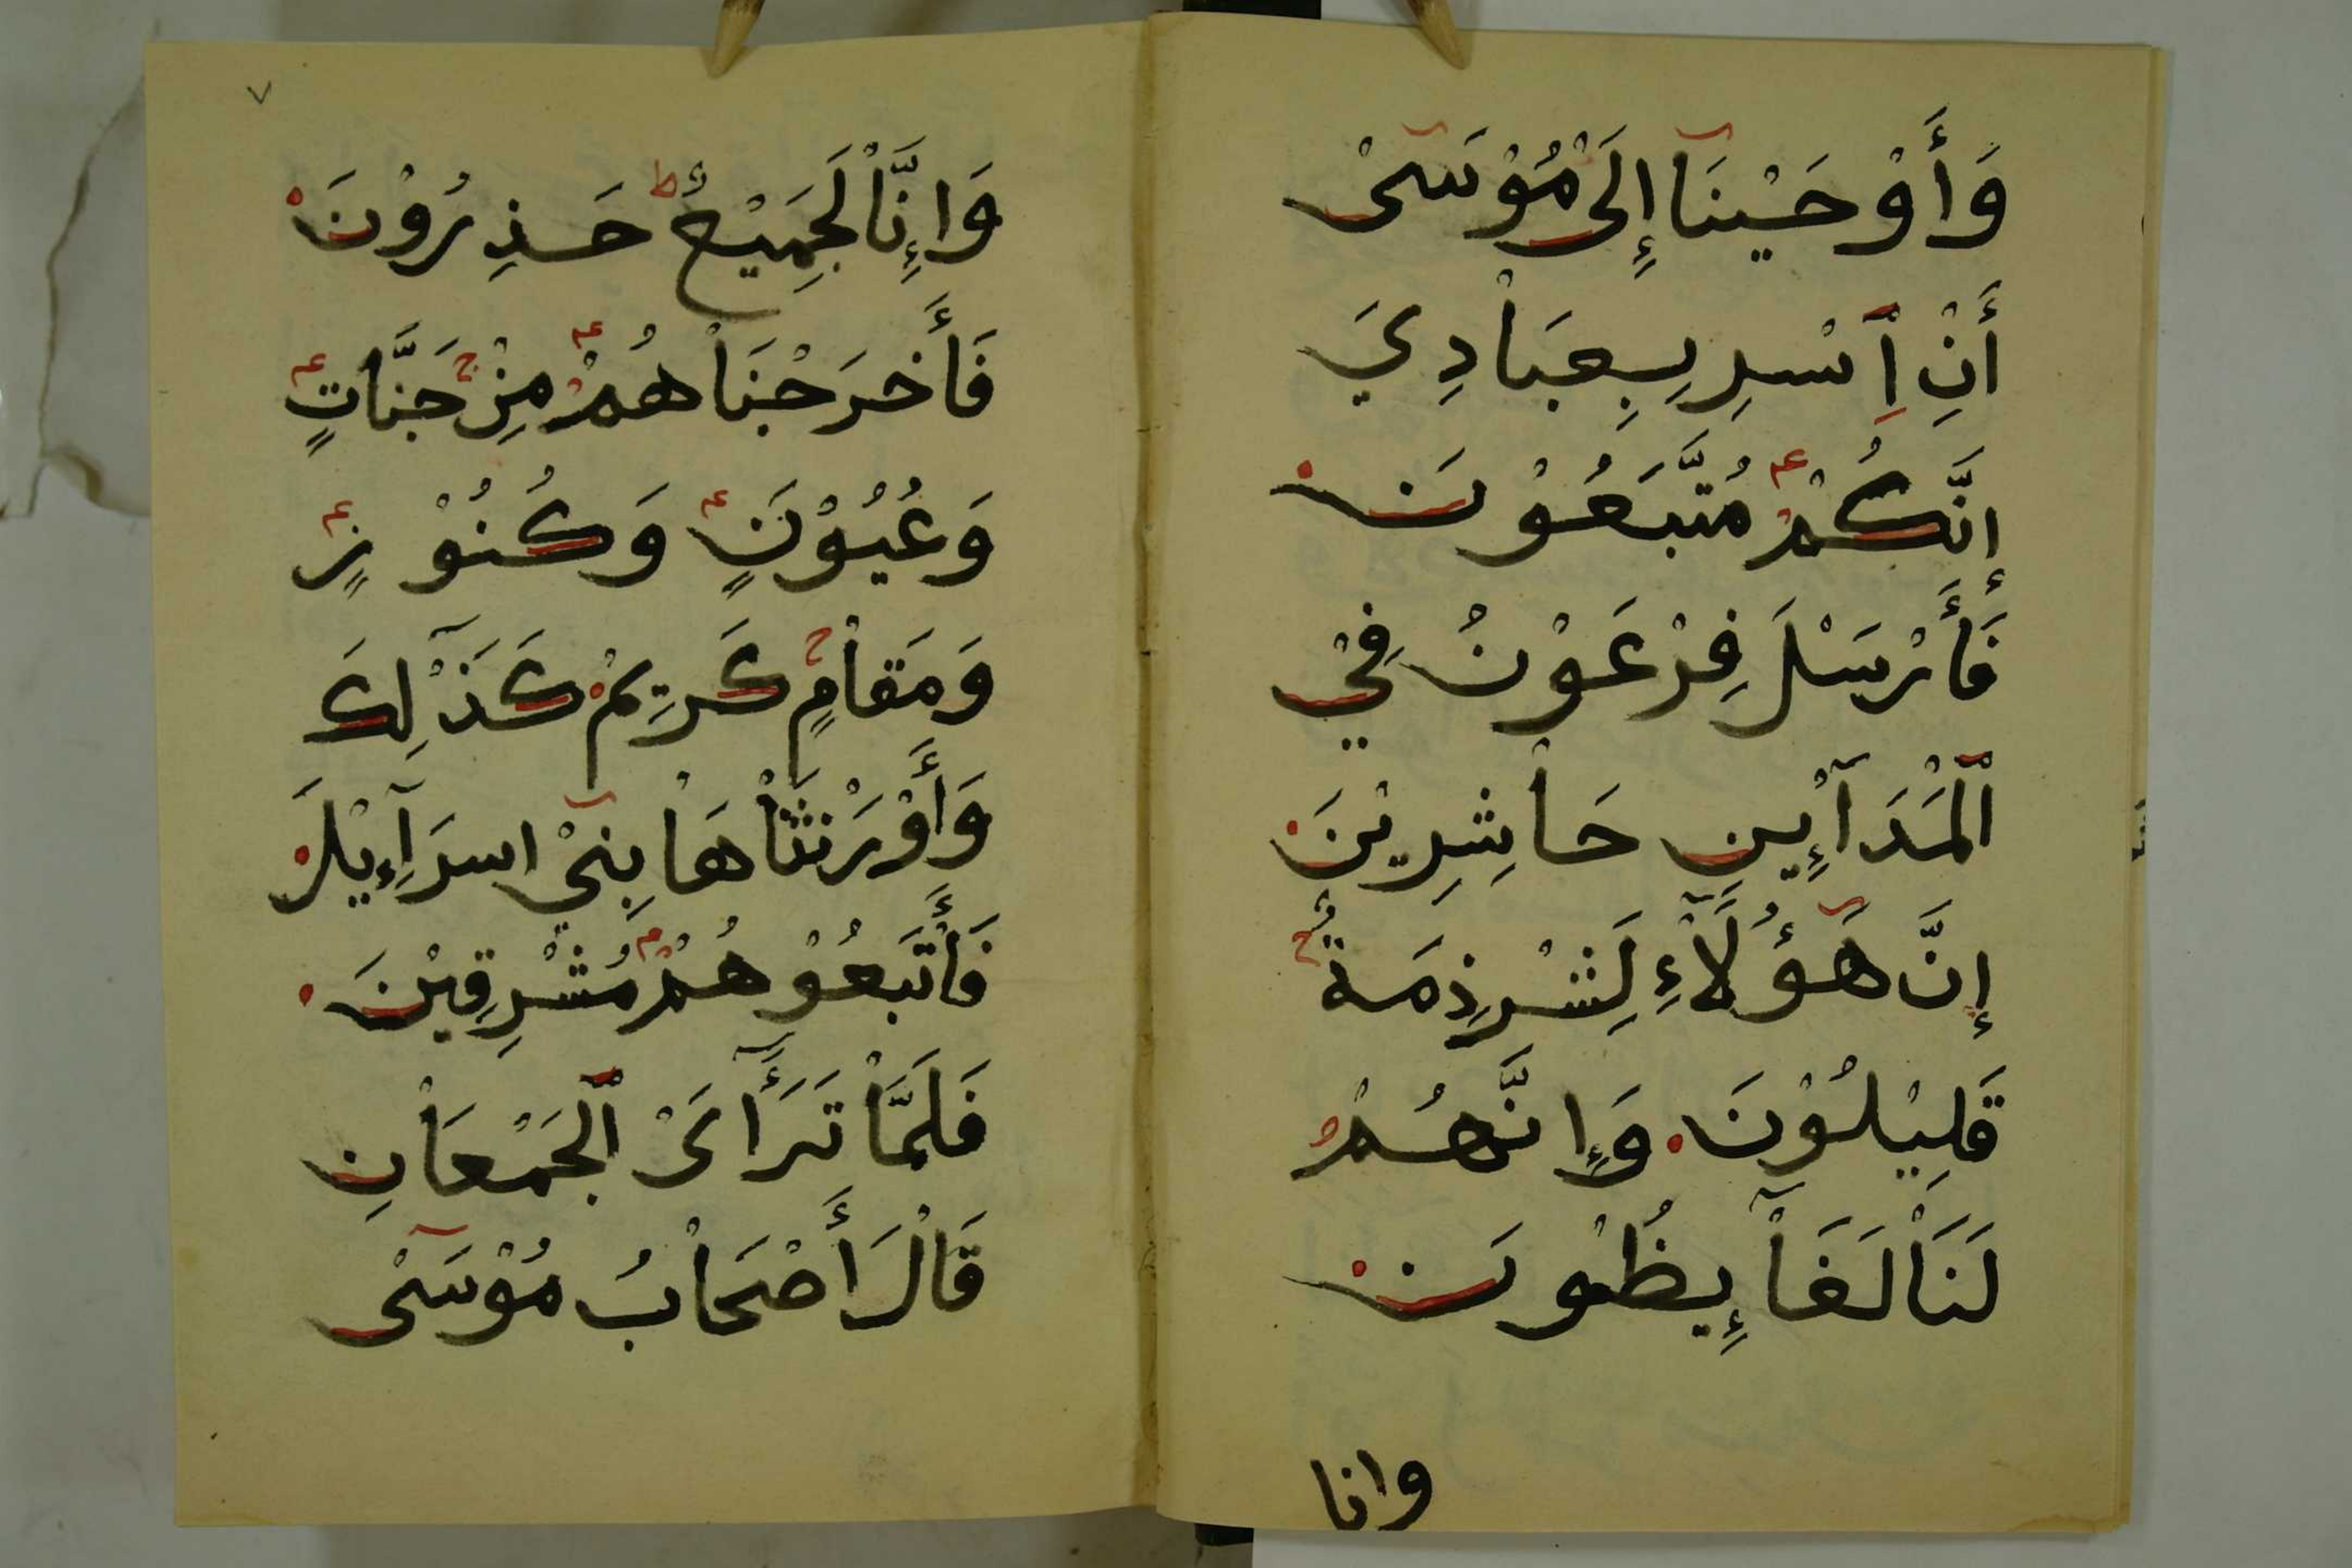 وَأَوْحَيْنَآ إِلَىْ مُوْسَىْ
أَنِ ٱِسْرِ بِعِبَاْدِيَ
إِنَّكُمْ مُتَّبَعُوْنَ
فَأَرْسَلَ فِرْعَوْنُ فِيْ
ٱلْمَدَآئِنِ حَاْشِرِيْنَ
إِنَّ هَؤُلَآءِ لَشْرِذِمَةٌ
قَلِيْلُوْنَ وَإِنَّهُمْ
لَنَاْ لَغَآئِظُوْنَ
وانا
٧
وَإِنَّاْ لَجَمِيْعٌ حَذِرُوْنَ
فَأَخرَجْنَاْهُمْ مِنْ جَنَّاتٍ
وَعُيُوْنٍ وَكُنُوْزٍ
وَمَقَاْمٍ كَرِيْمْ كَذَٰلِكَ
وَأَوْرَثْنَاْهَاْ بَنِيْ اسرَآءِيْلَ
فَأَتْبَعُوْهُمْ مُشْرِقِيْنَ
فَلَمَّاْ تَرَآءَىْ ٱلْجَمْعَاْنِ
قَاْلَ أَصْحَاْبُ مُوْسَىْ